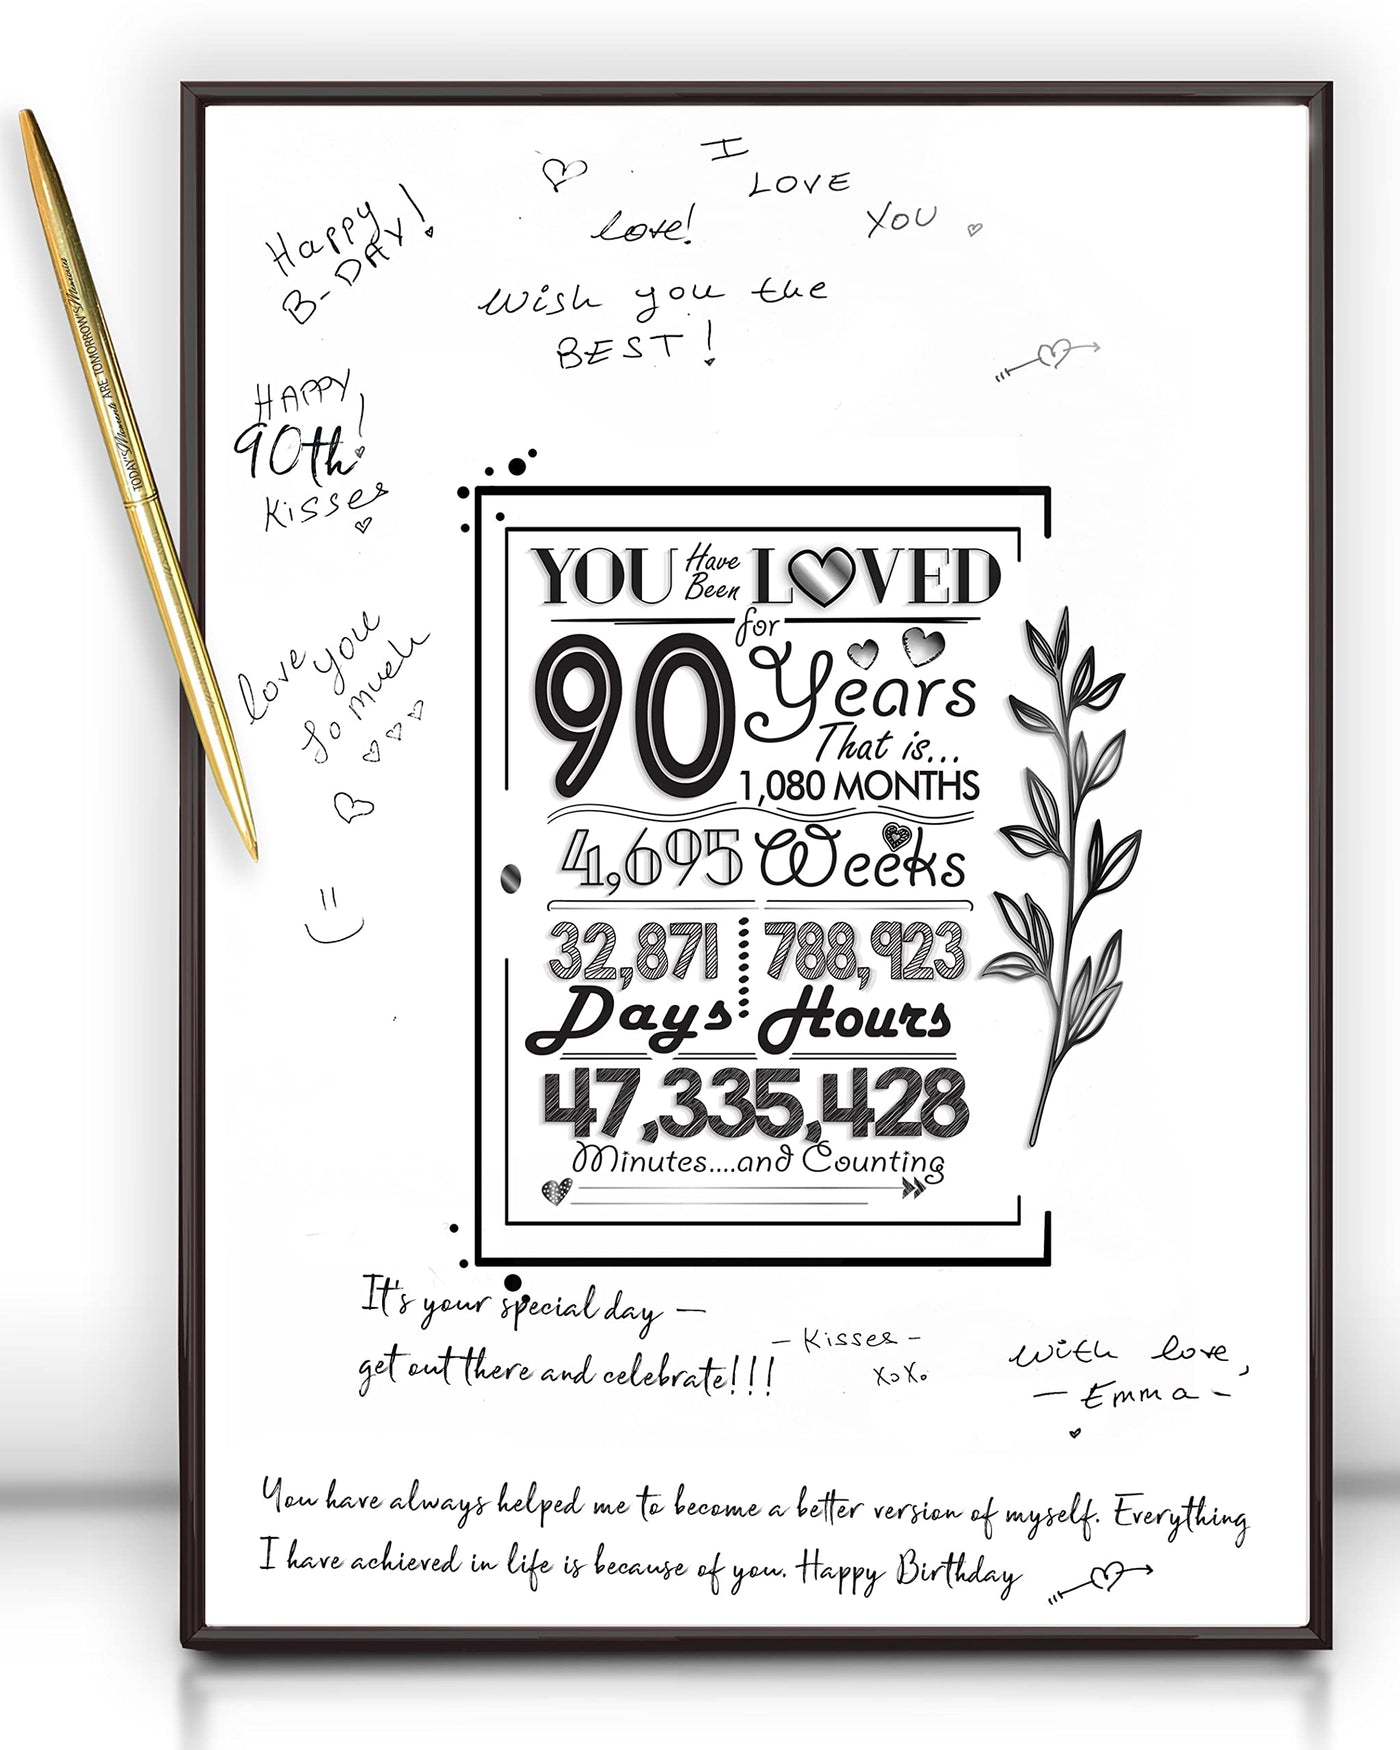 I
LOVE
YOU
love!
Happy
B-DAY!
Wish you the
BEST!
HAPPY
90th!
Kisses
love you
so much
YOU Have Been LOVED
for
90 Years
That is...
1,080 MONTHS
4,695 Weeks
32,871 788,923
Days Hours
47,335,428
Minutes....and Counting
It's your special day —
get out there and celebrate!!!
- Kisses -
XoXo
With love,
- Emma -
You have always helped me to become a better version of myself. Everything
I have achieved in life is because of you. Happy Birthday
TODAY'S Moments ARE TOMORROW'S Memories